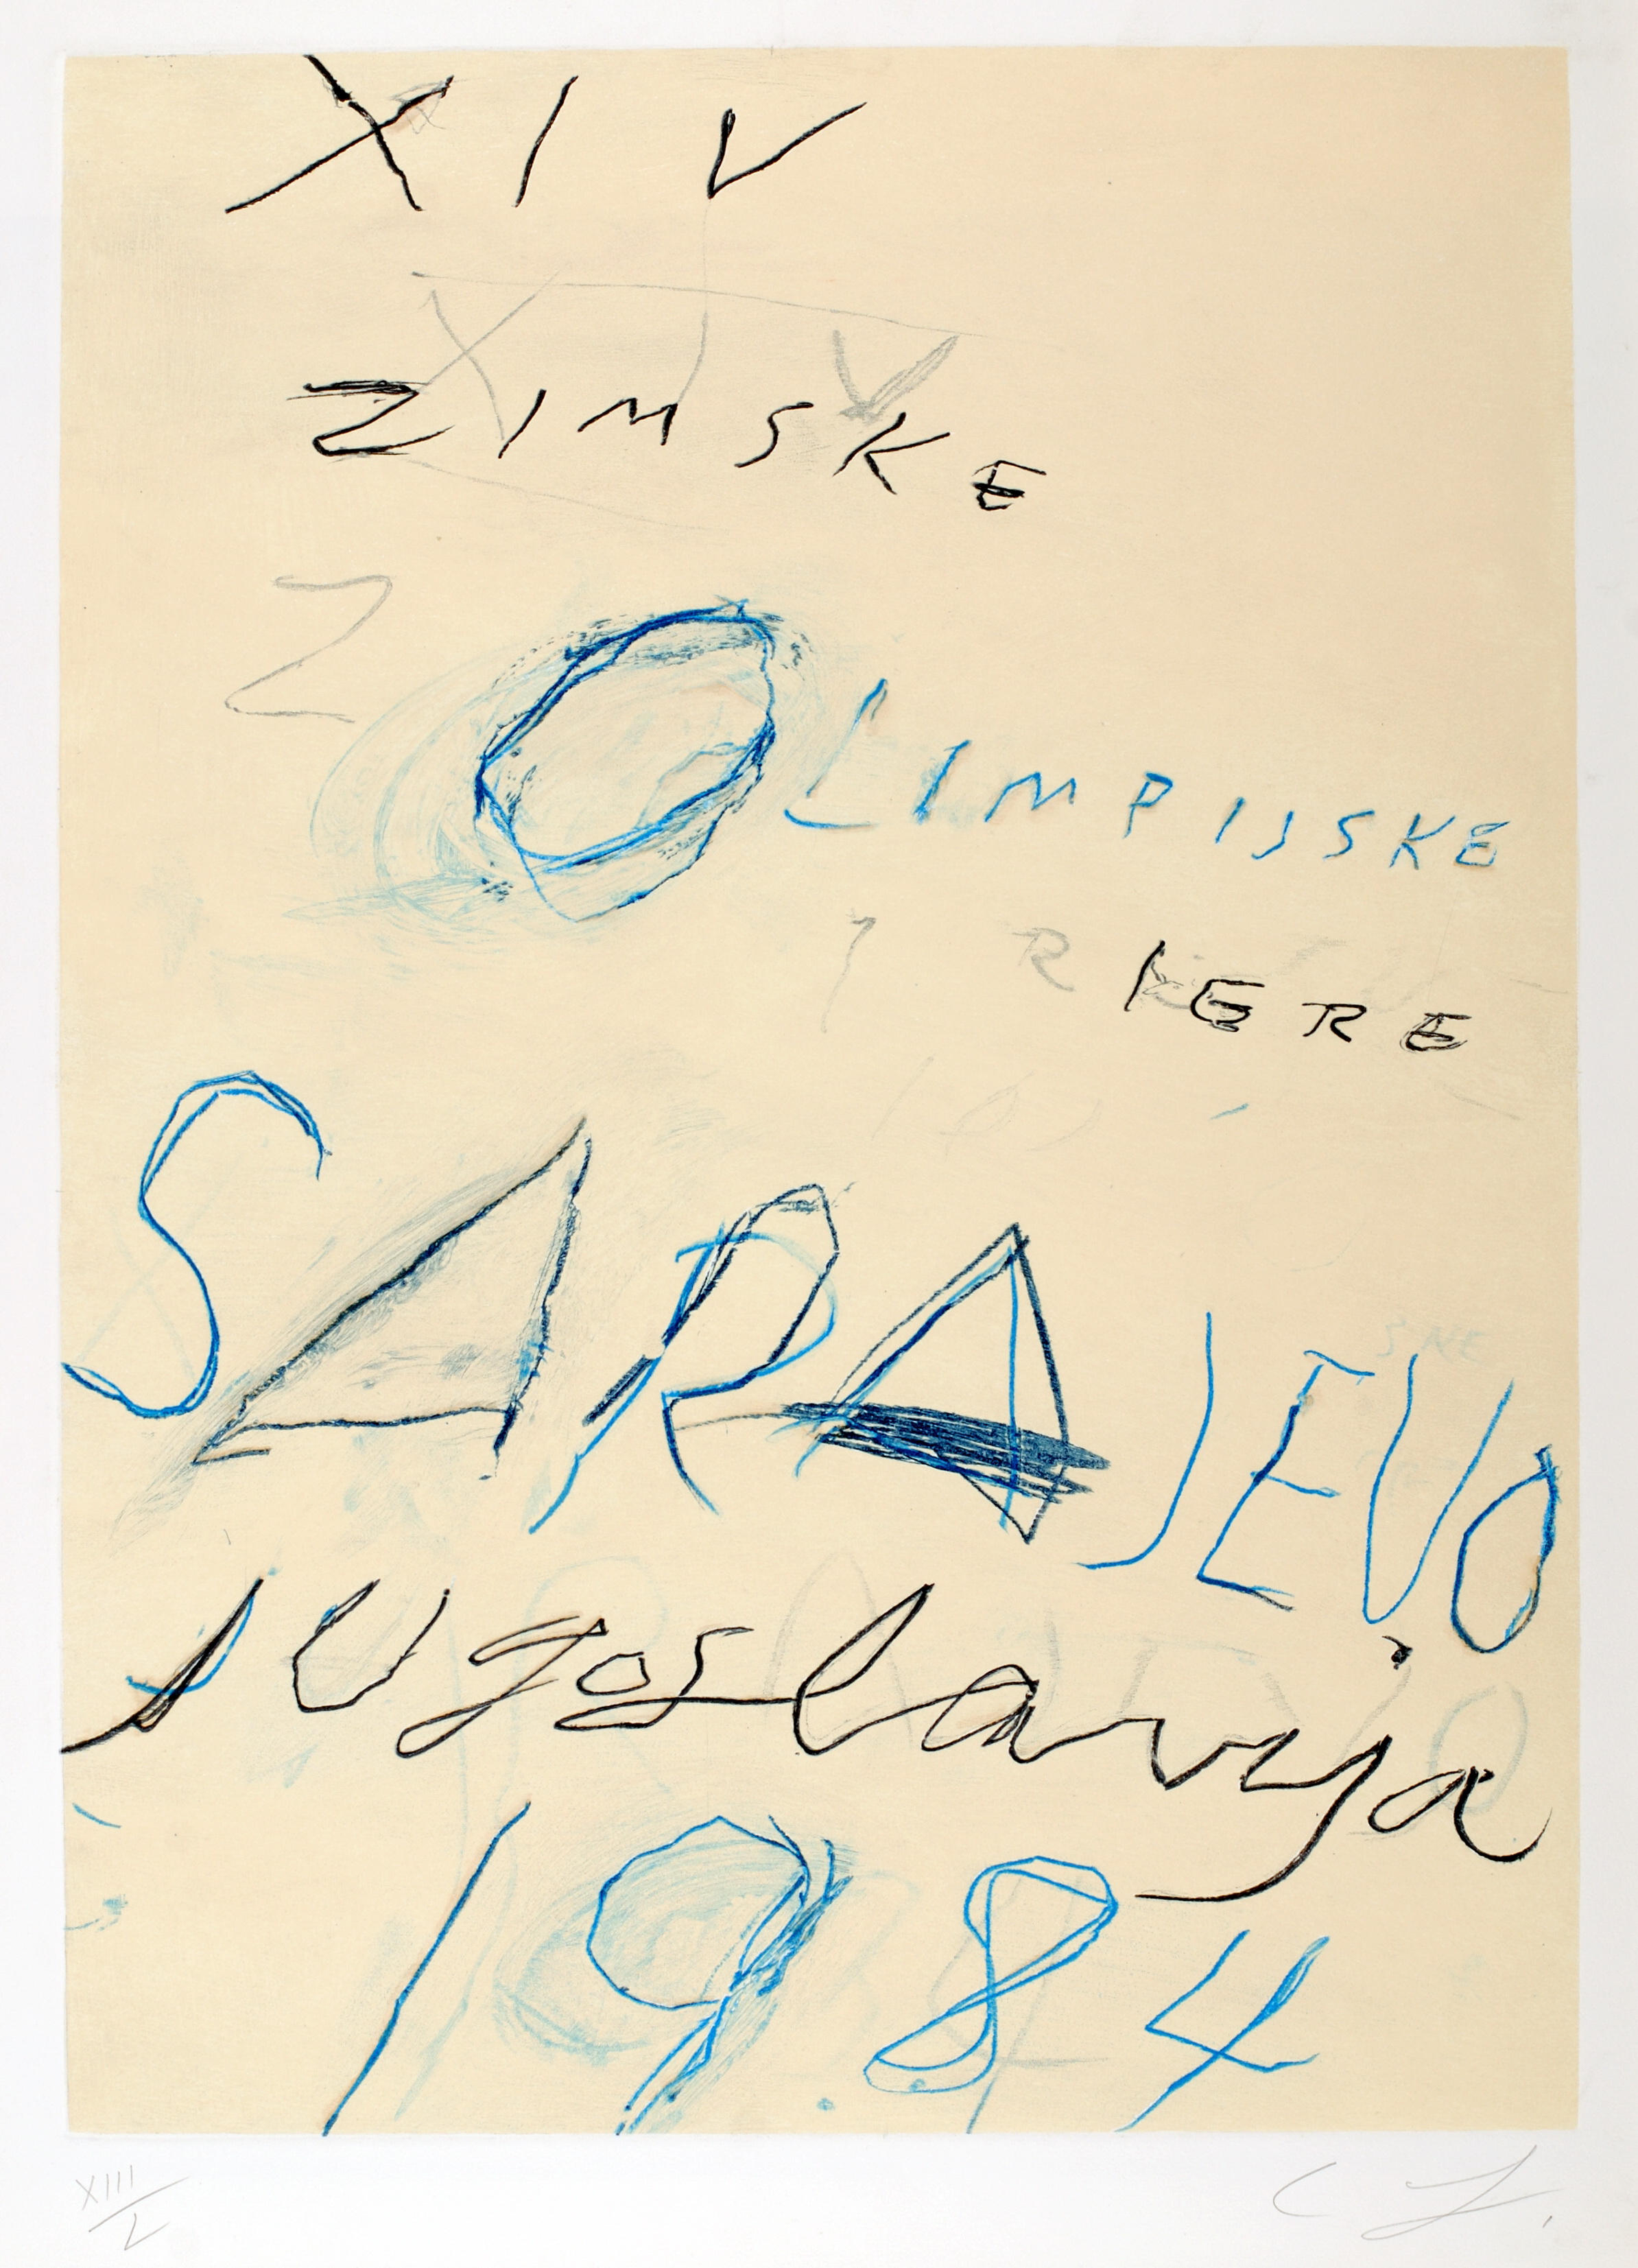 XIV
ZIMSKE
Z
OLIMPIJSKE
R IGRE
SARAJEVO
Jugoslavija
1984
XIII/L